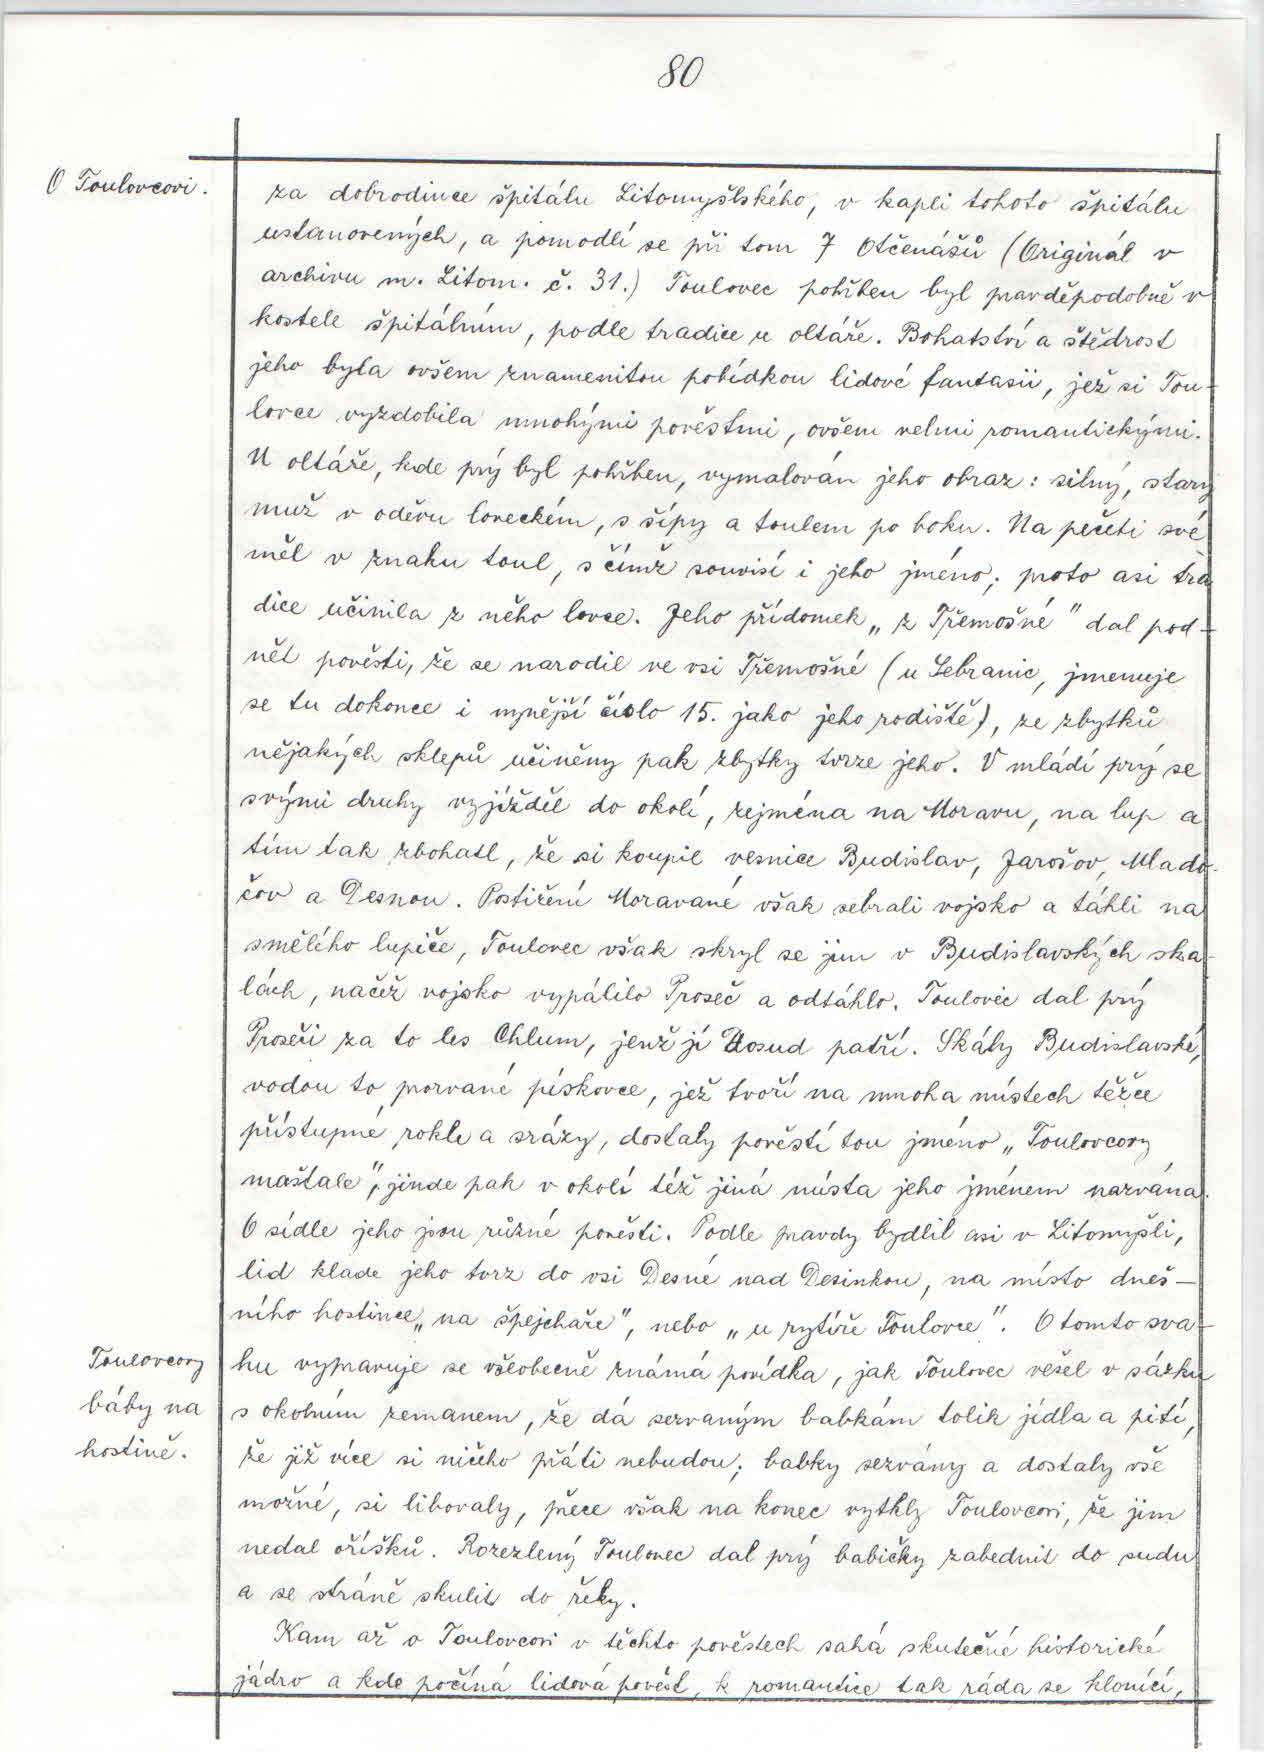 80
O Toulovcovi.
za dobrodince špitálu Litomyšlského, v kapli tohoto špitálu
ustanovených, a pomodlí se při tom 7 Otčenášů (Originál v
archivu m. Litom. č. 31.) Toulovec pohřben byl pravděpodobně v
kostele špitálním, podle tradice u oltáře. Bohatství a štědrost
jeho byla ovšem znamenitou pobídkou lidové fantasii, jež si Tou-
lovce vyzdobila mnohými pověstmi, ovšem velmi romantickými.
U oltáře, kde prý byl pohřben, vymalován jeho obraz: silný, starý
muž v oděvu loveckém, s šípy a toulem po boku. Na pečeti své
měl v znaku toul, s čímž souvisí i jeho jméno; proto asi tra
dice učinila z něho lovce. Jeho přídomek „z Třemošné" dal pod-
nět pověsti, že se narodil ve vsi Třemošné (u Sebranic, jmenuje
se tu dokonce i nynější číslo 15. jako jeho rodiště), ze zbytků
nějakých sklepů učiněny pak zbytky tvrze jeho. V mládí prý se
svými druhy vyjížděl do okolí, zejména na Moravu, na lup a
tím tak zbohatl, že si koupil vesnice Budislav, Jarošov, Mlado-
čov a Desnou. Postižení Moravané však sebrali vojsko a táhli na
smělého lupiče, Toulovec však skryl se jim v Budislavských ska-
lách, načež vojsko vypálilo Proseč a odtáhlo. Toulovec dal prý
Proseči za to les Chlum, jenž jí dosud patří. Skály Budislavské,
vodou to porvané pískovce, jež tvoří na mnoha místech těžce
přístupné rokle a srázy, dostaly pověstí tou jméno „Toulovcovy
maštale", jinde pak v okolí též jiná místa jeho jménem nazvána.
O sídle jeho jsou různé pověsti. Podle pravdy bydlil asi v Litomyšli,
lid klade jeho tvrz do vsi Desné nad Desinkou, na místo dneš-
ního hostince „na špejchaře", nebo „u rytíře Toulovce". O tomto sva-
Toulovcovy
báby na
hostině.
hu vypravuje se všeobecně známá povídka, jak Toulovec vešel v sázku
s okolním zemanem, že dá sezvaným babkám tolik jídla a pití,
že již více si ničeho přáti nebudou; babky sezvány a dostaly vše
možné, si libovaly, přece však na konec vytkly Toulovcovi, že jim
nedal oříšků. Rozezlený Toulovec dal prý babičky zabednit do sudu
a se stráně skulit do řeky.
Kam až o Toulovcovi v těchto pověstech sahá skutečné historické
jádro a kde počíná lidová pověst, k romantice tak ráda se klonící,